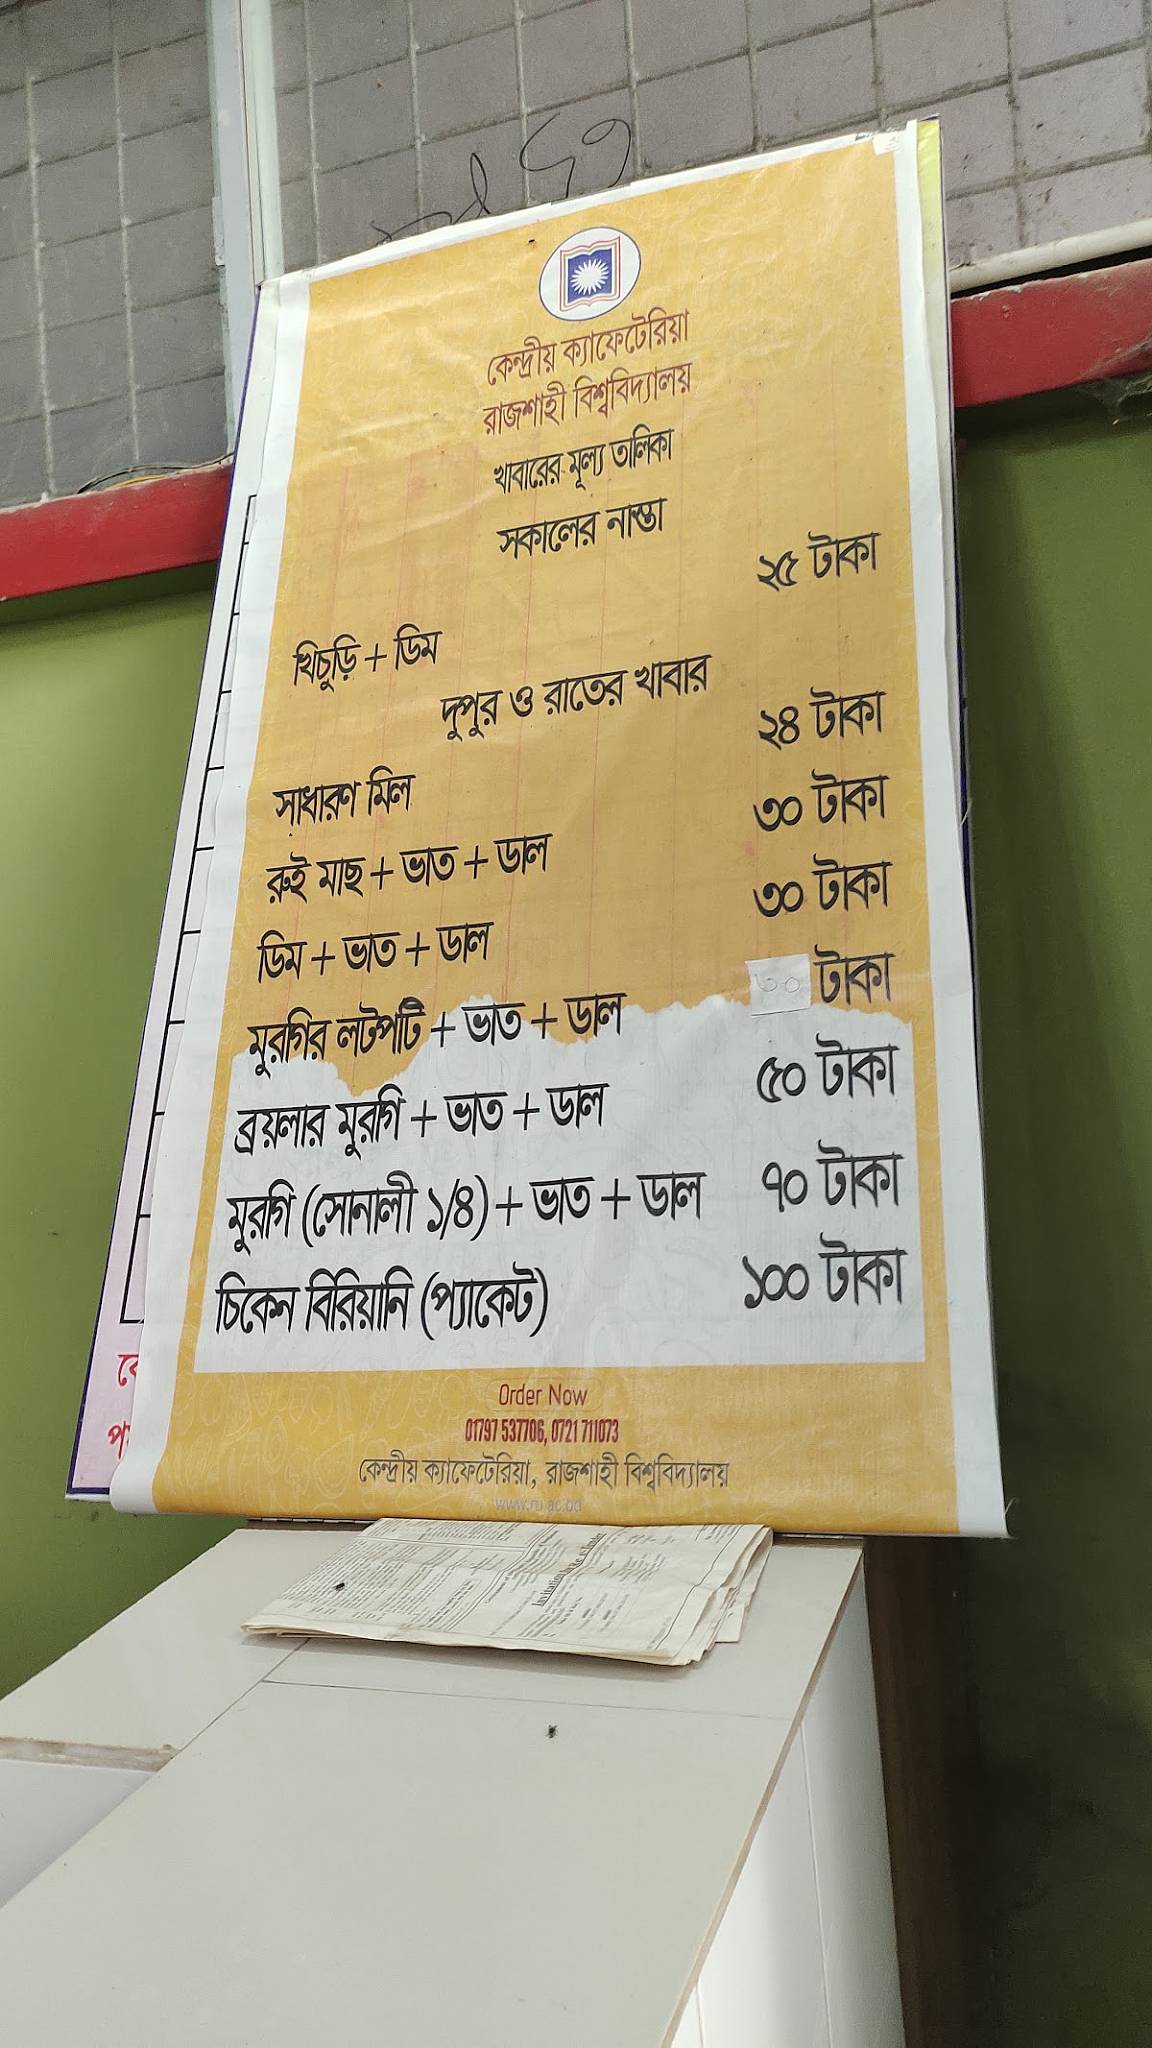 কেন্দ্রীয় ক্যাফেটেরিয়া
রাজশাহী বিশ্ববিদ্যালয়
খাবারের মূল্য তালিকা
সকালের নাস্তা
খিচুড়ি + ডিম ২৫ টাকা
দুপুর ও রাতের খাবার
সাধারণ মিল ২৪ টাকা
রুই মাছ + ভাত + ডাল ৩০ টাকা
ডিম + ভাত + ডাল ৩০ টাকা
মুরগির লটপটি + ভাত + ডাল টাকা
ব্রয়লার মুরগি + ভাত + ডাল ৫০ টাকা
মুরগি (সোনালী ১/৪) + ভাত + ডাল ৭০ টাকা
চিকেন বিরিয়ানি (প্যাকেট) ১০০ টাকা
Order Now
01797 537706, 0721 711073
কেন্দ্রীয় ক্যাফেটেরিয়া, রাজশাহী বিশ্ববিদ্যালয়
www.ru.ac.bd